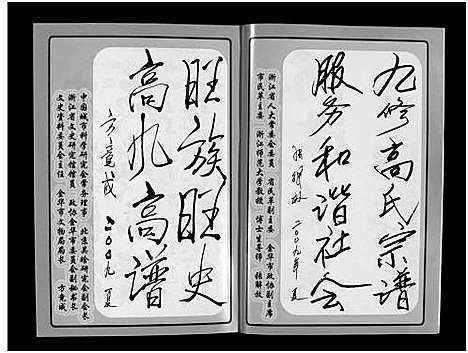 九修高氏宗谱
服务和谐社会
张解放 二〇〇九年 夏
浙江省人大常委会委员 省民革副主委 金华市政协副主席
市民革主委 浙江师范大学教授 博士生导师 张解放
旺族旺史
高九高谱
方竟成 二〇〇九 夏
中国城市科学研究会常务理事 北京吴晗研究会副会长
浙江省文史研究馆馆员 政协金华市委员会副秘书长
文史资料委员会主任 金华市文物局局长 方竟成